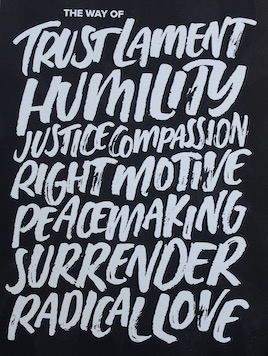 THE WAY OF
TRUST LAMENT
HUMILITY
JUSTICE COMPASSION
RIGHT MOTIVE
PEACEMAKING
SURRENDER
RADICAL LOVE